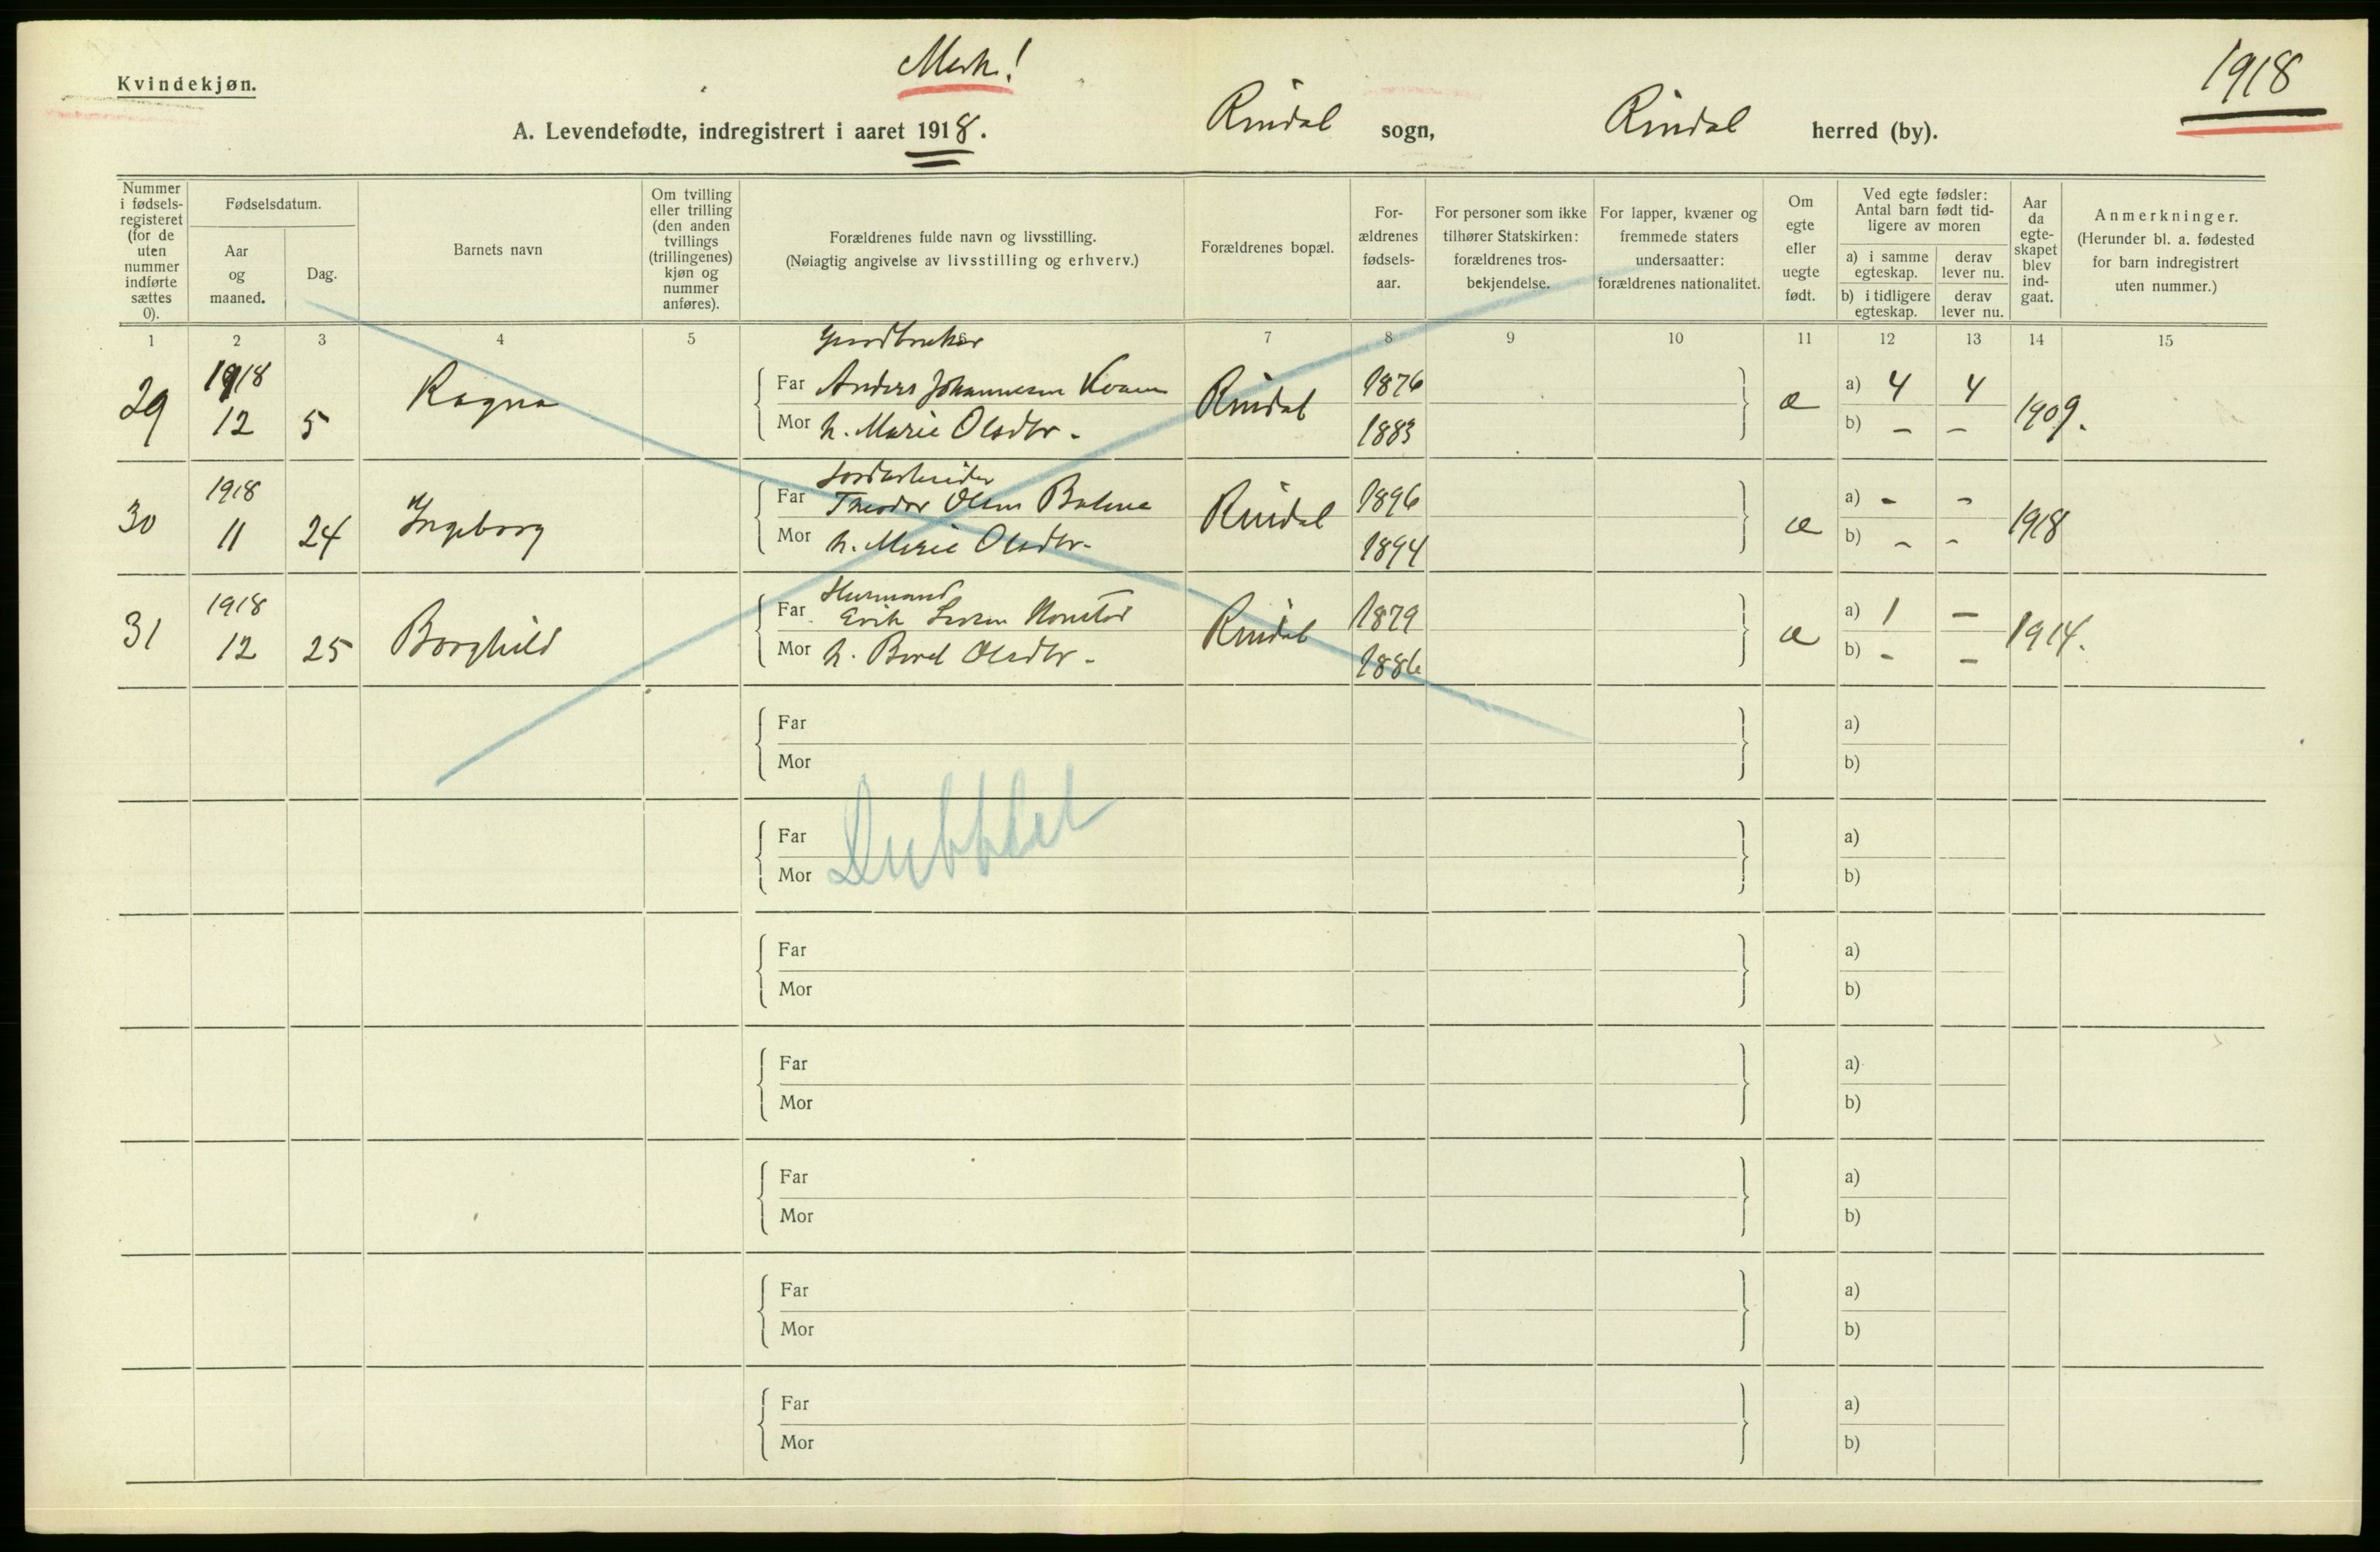 Kvindekjøn.
Merk!
1918
A. Levendefødte, indregistrert i aaret 1918.
Rindal sogn,
Rindal herred (by).
Nummer i fødsels-registeret (for de uten nummer indførte sættes 0).
Fødselsdatum.
Aar og maaned.
Dag.
Barnets navn
Om tvilling eller trilling (den anden tvillings (trillingenes) kjøn og nummer anføres).
Forældrenes fulde navn og livsstilling.
(Nøiagtig angivelse av livsstilling og erhverv.)
Forældrenes bopæl.
For-ældrenes fødsels-aar.
For personer som ikke tilhører Statskirken: forældrenes tros-bekjendelse.
For lapper, kvæner og fremmede staters undersaatter: forældrenes nationalitet.
Om egte eller uegte født.
Ved egte fødsler:
Antal barn født tid-ligere av moren
a) i samme egteskap.
derav lever nu.
b) i tidligere egteskap.
derav lever nu.
Aar da egte-skapet blev ind-gaat.
Anmerkninger.
(Herunder bl. a. fødested for barn indregistrert uten nummer.)
1 2 3 4 5 6 7 8 9 10 11 12 13 14 15
Gaardbruker
29 1918 12 5 Ragna
Far Anders Johannesen Kvam
Mor h. Marie Olsdtr.
Rindal 1876 1883 æ
a) 4 4
b) – –
1909.
Jordarbeider
30 1918 11 24 Ingeborg
Far Theodor Olsen
Mor h. Marie Olsdtr.
Rindal 1896 1894 æ
a) - -
b) - -
1918
Husmand
31 1918 12 25 Borghild
Far Erik
Mor h. Beret Olsdtr.
Rindal 1879 1886 æ
a) 1 –
b) - –
1914.
Far
Mor
a)
b)
Dubblet
Far
Mor
a)
b)
Far
Mor
a)
b)
Far
Mor
a)
b)
Far
Mor
a)
b)
Far
Mor
a)
b)
Far
Mor
a)
b)